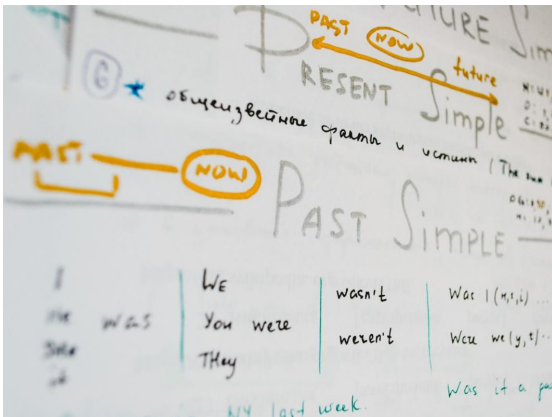 FUTURE Sim
PAST NOW future
PRESENT Simple
6 * общеизвейные факты и истины (The sun
PAST NOW
PAST SIMPLE
I
He was
She
it
WE
You were
THey
wasn't
weren't
Was I (H,s,i) ...
Were we (y,t) ...
Was it a
NY last week.